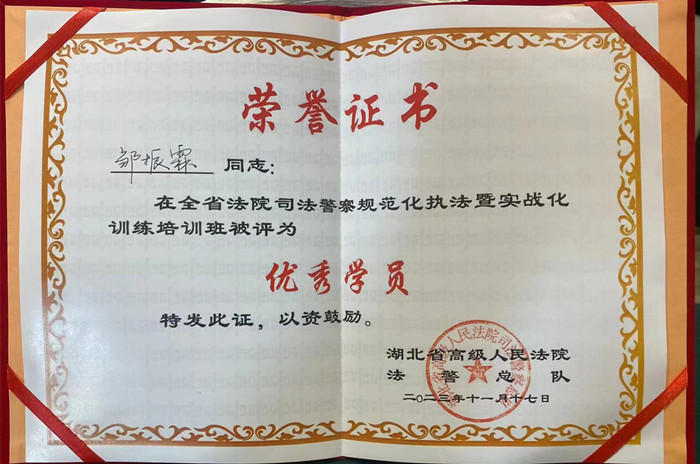 荣誉证书
邹振霖 同志：
在全省法院司法警察规范化执法暨实战化
训练培训班被评为
优秀学员
特发此证，以资鼓励。
湖北省高级人民法院
法警总队
二〇二三年十一月十七日
湖北省高级人民法院司法警察总队